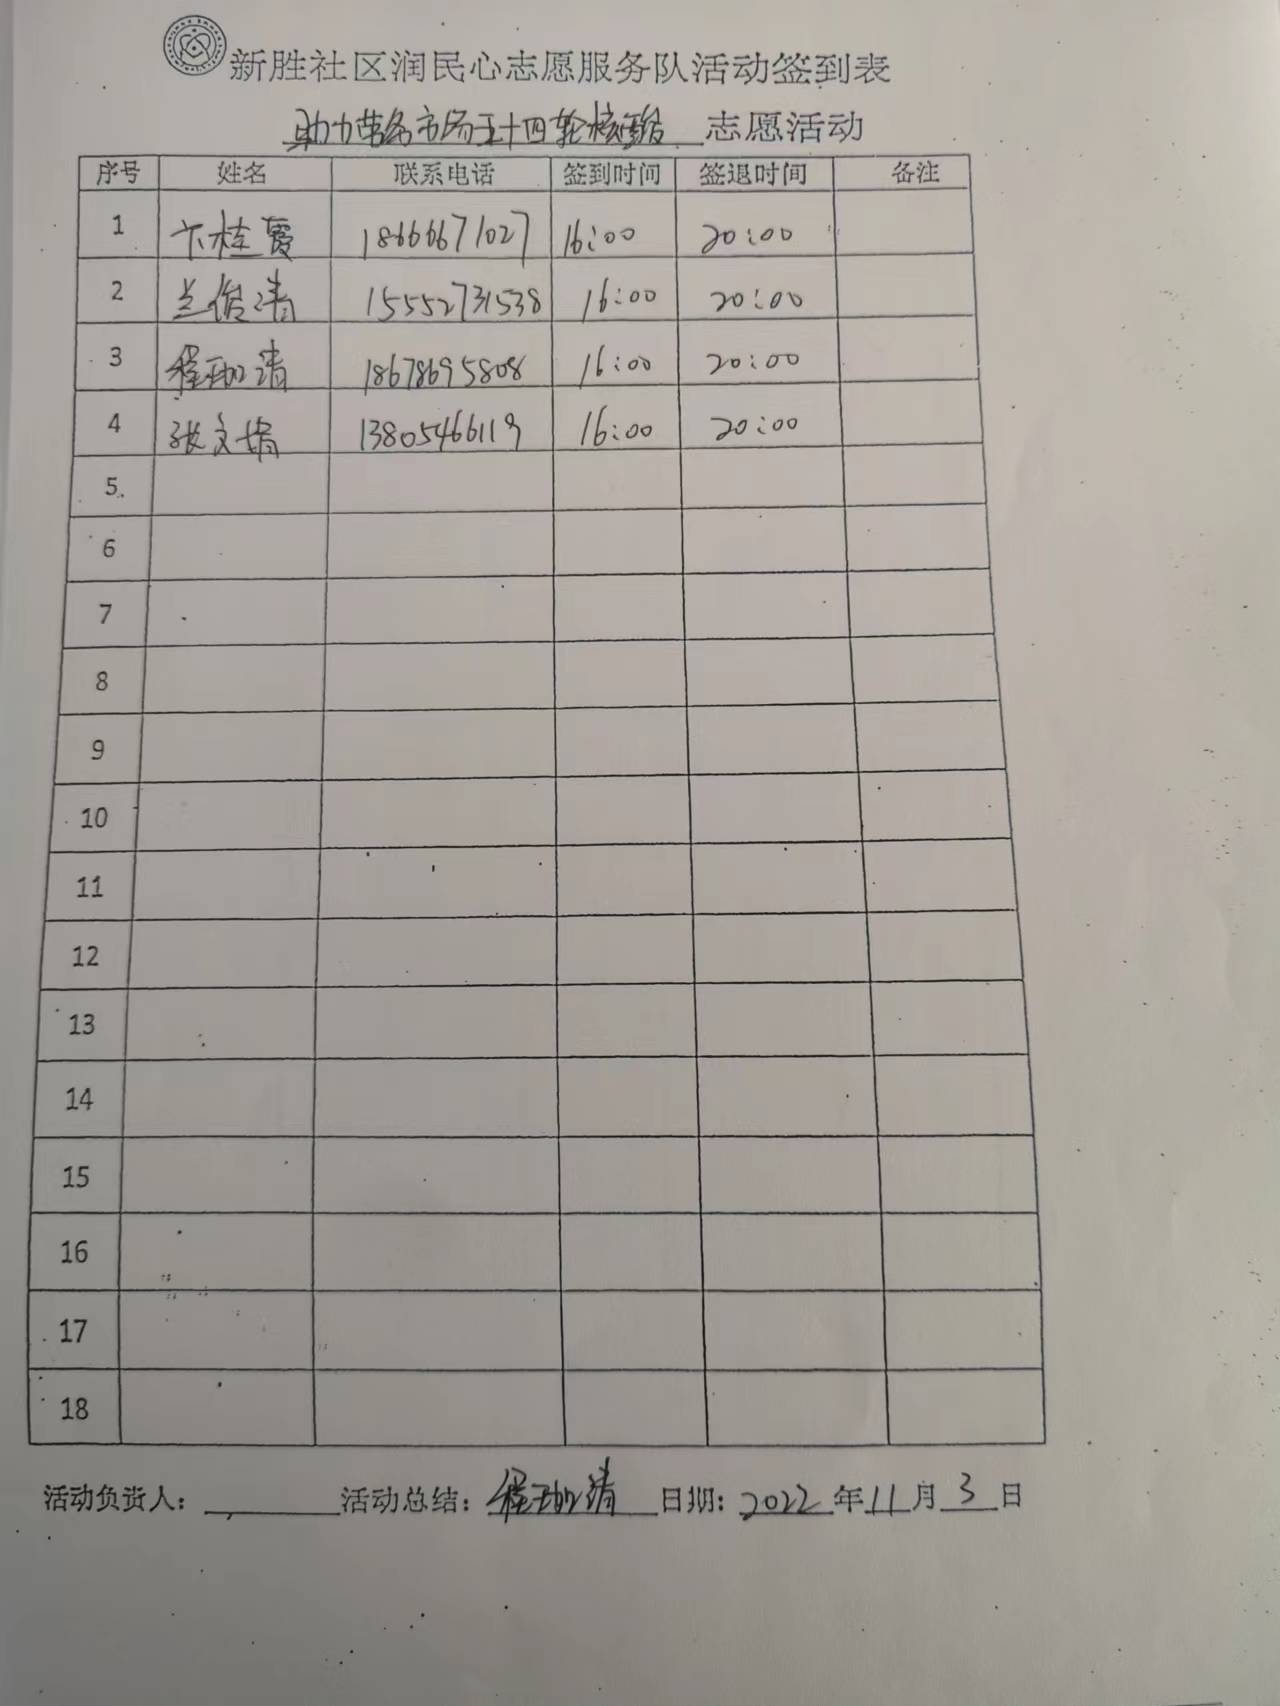 新胜社区润民心志愿服务队活动签到表
助力劳务市场五十四轮核酸 志愿活动
序号 姓名 联系电话 签到时间 签退时间 备注
1 卞桂霞 18666671027 16:00 20:00
2 兰俊清 15552731538 16:00 20:00
3 程珈清 18678695808 16:00 20:00
4 张文娟 13805466119 16:00 20:00
5
6
7
8
9
10
11
12
13
14
15
16
17
18
活动负责人: 活动总结: 程珈清 日期: 2022 年 11 月 3 日